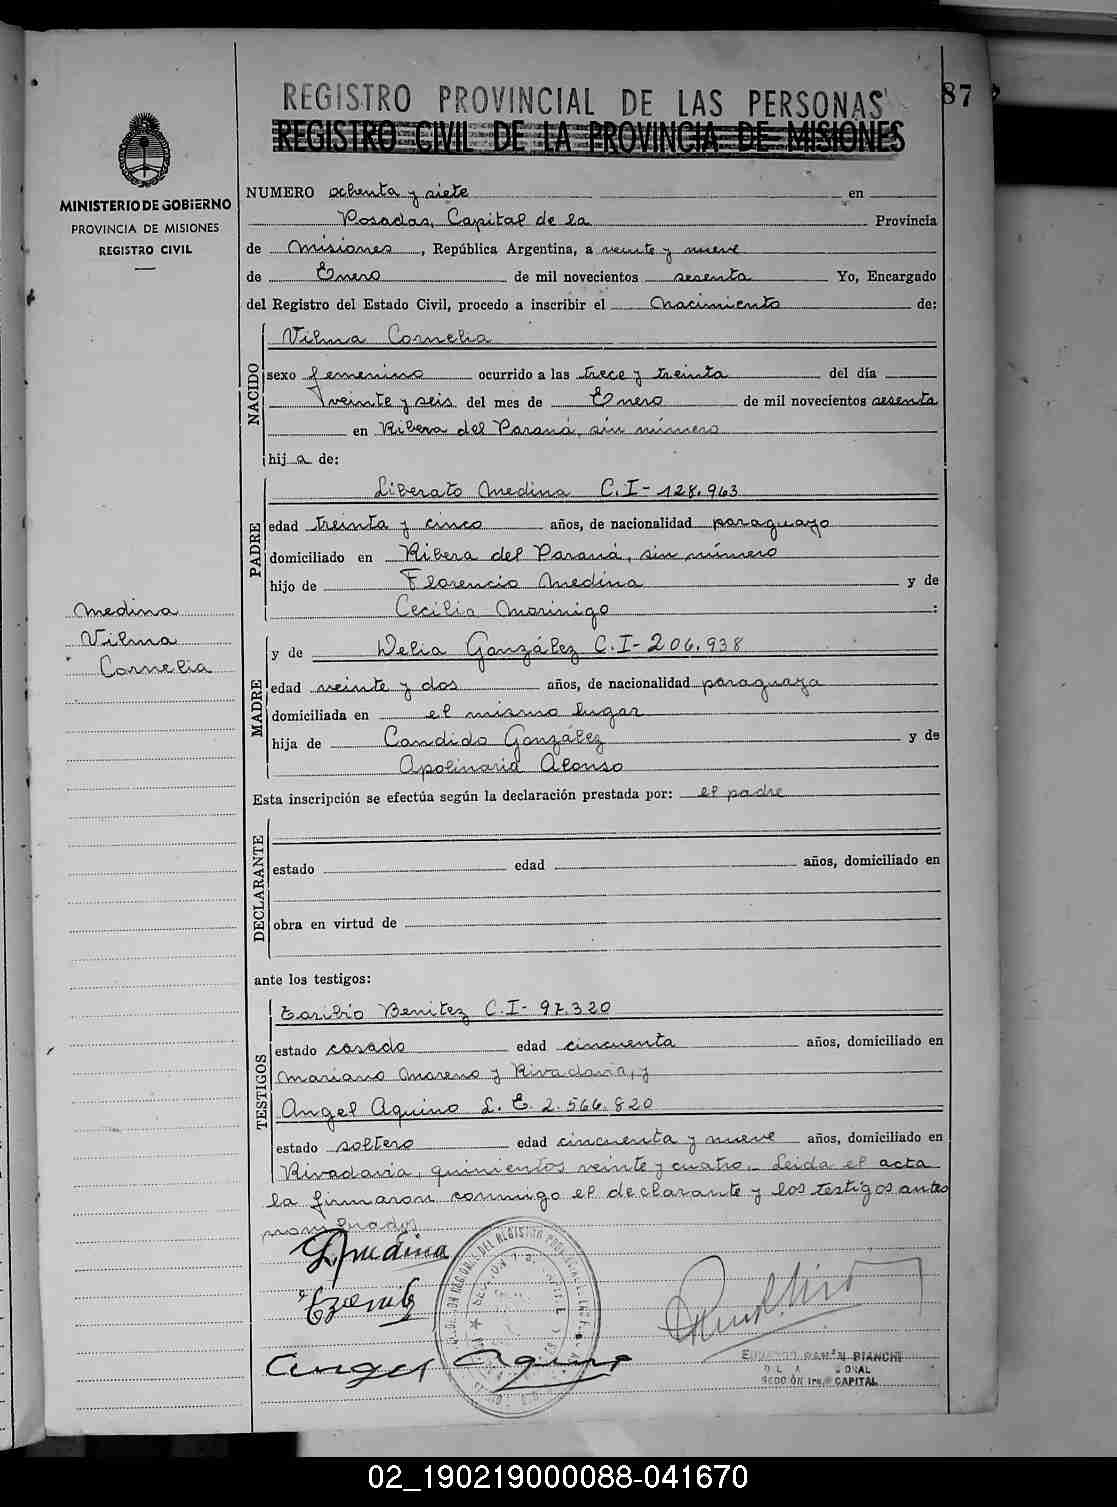 REGISTRO PROVINCIAL DE LAS PERSONAS
87
REGISTRO CIVIL DE LA PROVINCIA DE MISIONES
MINISTERIO DE GOBIERNO
PROVINCIA DE MISIONES
REGISTRO CIVIL
NUMERO ochenta y siete en
Posadas, Capital de la Provincia
de Misiones, República Argentina, a veinte y nueve
de Enero de mil novecientos sesenta Yo, Encargado
del Registro del Estado Civil, procedo a inscribir el Nacimiento de:
NACIDO
Vilma Cornelia
sexo femenino ocurrido a las trece y treinta del día
veinte y seis del mes de Enero de mil novecientos sesenta
en Ribera del Paraná, sin número
hija de:
PADRE
Liberato Medina C.I-128.963
edad treinta y cinco años, de nacionalidad paraguayo
domiciliado en Ribera del Paraná, sin número
hijo de Florencio Medina y de
Cecilia Morinigo :
Medina
Vilma
Cornelia
MADRE
y de Delia González C.I-206.938
edad veinte y dos años, de nacionalidad paraguaya
domiciliada en el mismo lugar
hija de Candido González y de
Apolinaria Alonso
Esta inscripción se efectúa según la declaración prestada por: el padre
DECLARANTE
estado edad años, domiciliado en
obra en virtud de
ante los testigos:
TESTIGOS
Toribio Benitez C.I- 97.320
estado casado edad cincuenta años, domiciliado en
Mariano Moreno y Rivadavia, y
Angel Aquino L.E. 2.566.820
estado soltero edad cincuenta y nueve años, domiciliado en
Rivadavia, quinientos veinte y cuatro. Leida el acta
la firmaron conmigo el declarante y los testigos antes
nombrados
L Medina
Angel Aquino
BIANCHI
CAPITAL
02_190219000088-041670